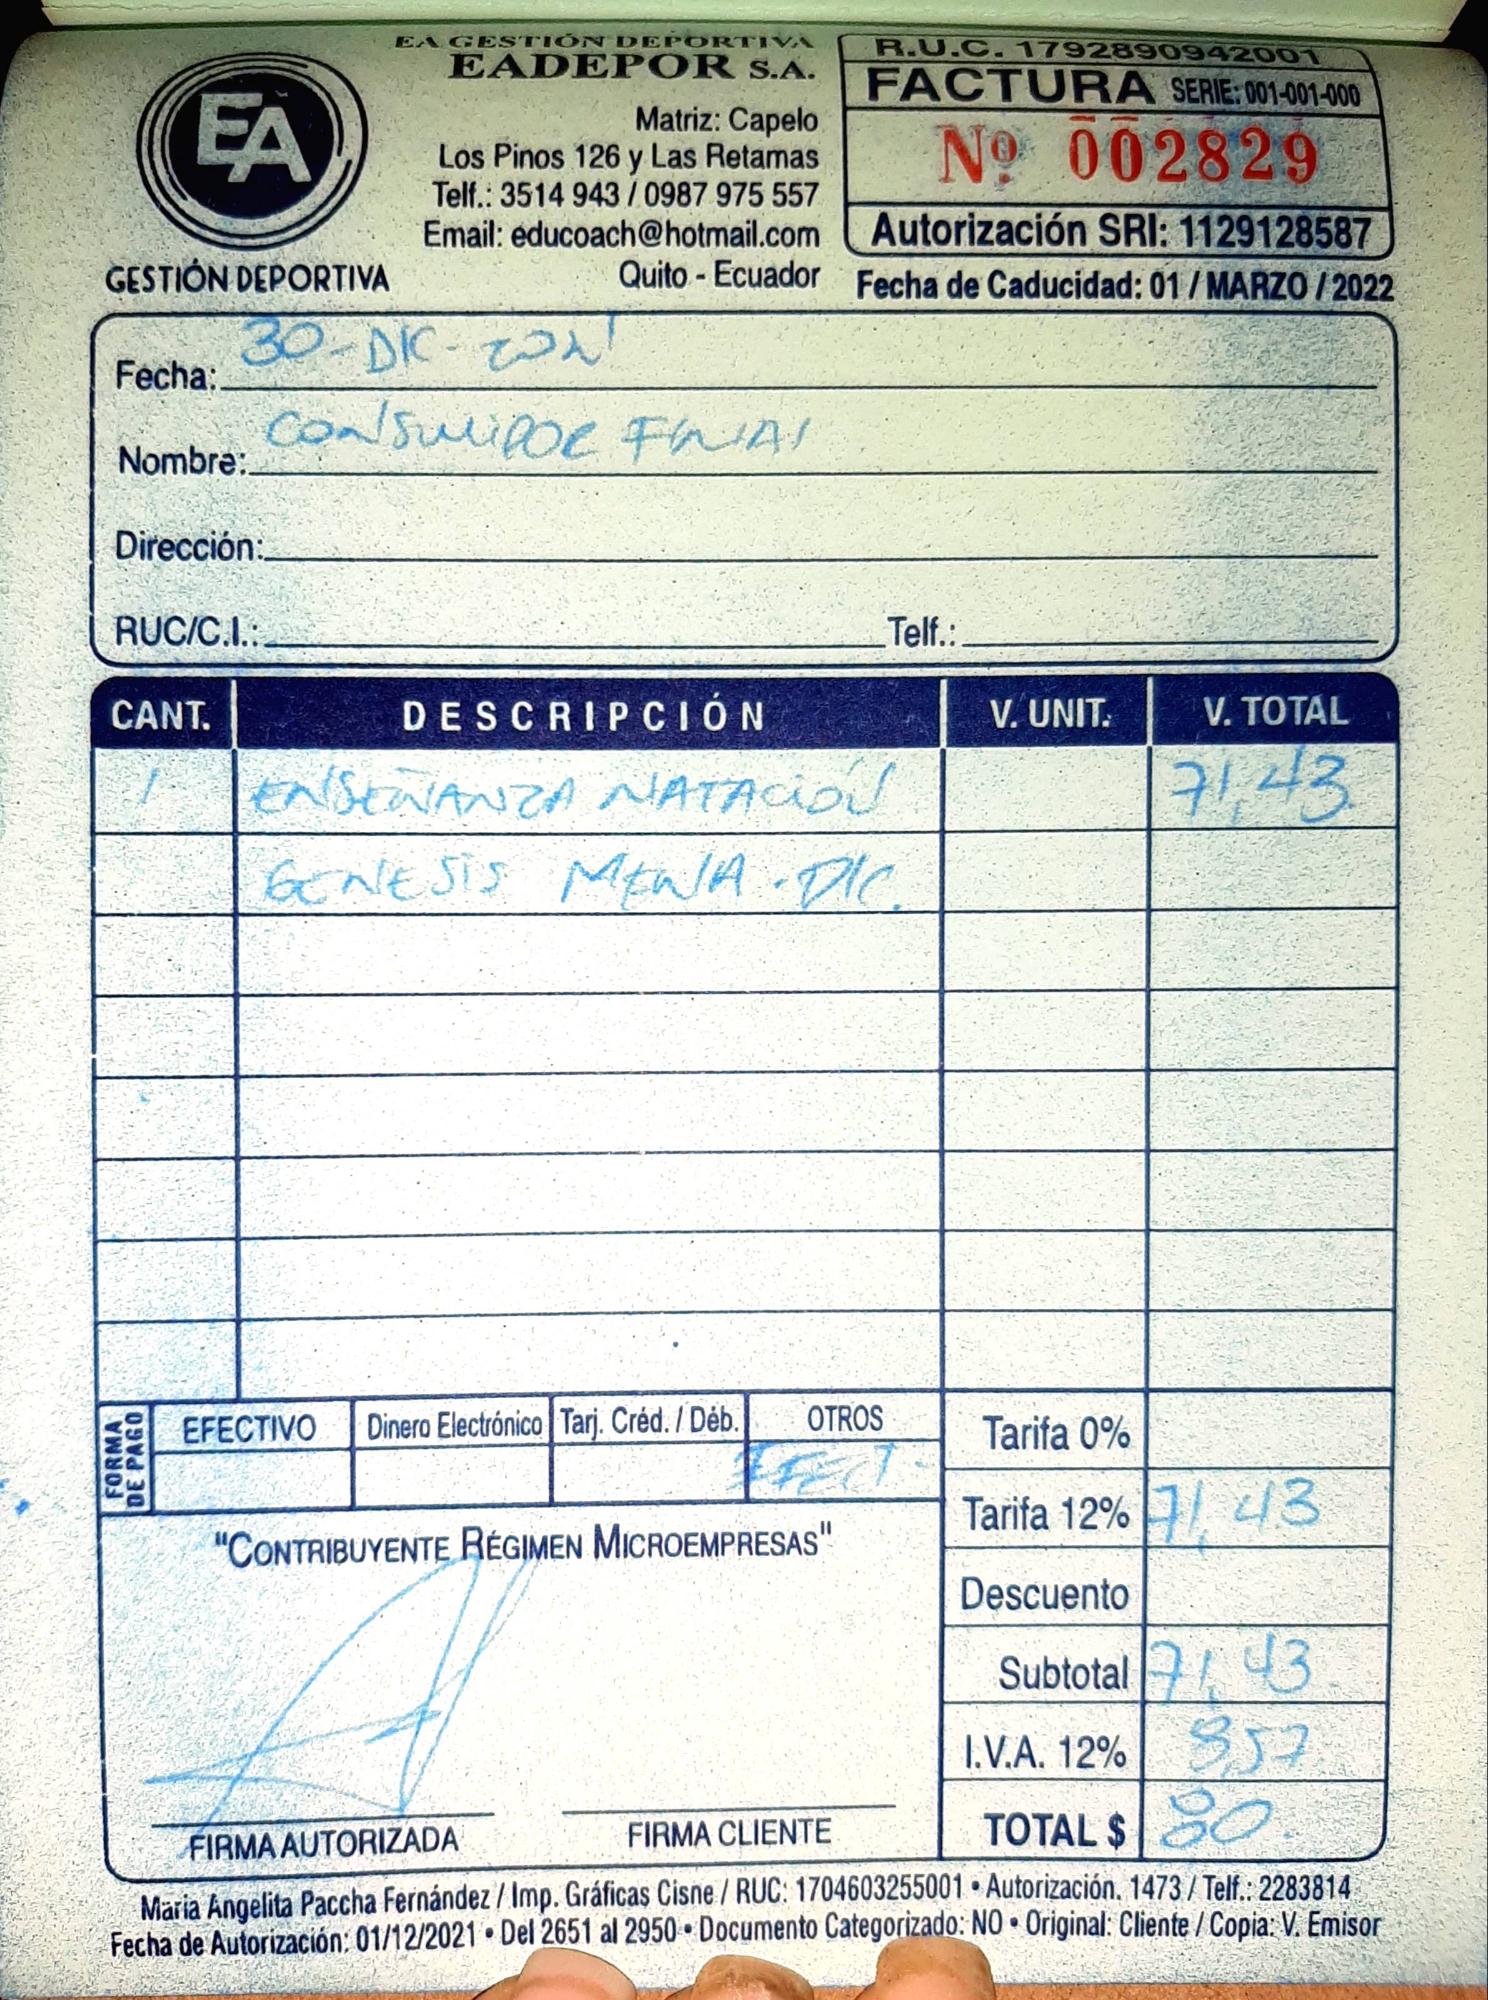 EA GESTIÓN DEPORTIVA
EADEPOR S.A.
Matriz: Capelo
Los Pinos 126 y Las Retamas
Telf.: 3514 943 / 0987 975 557
Email: educoach@hotmail.com
Quito - Ecuador
EA
GESTIÓN DEPORTIVA
R.U.C. 1792890942001
FACTURA SERIE: 001-001-000
Nº 002829
Autorización SRI: 1129128587
Fecha de Caducidad: 01 / MARZO / 2022
Fecha: 30-DIC-2021
Nombre: CONSUMIDOR FINAL
Dirección:
RUC/C.I.: Telf.:
CANT. DESCRIPCIÓN V. UNIT. V. TOTAL
1 ENSEÑANZA NATACIÓN 71,43
GENESIS MENA . DIC.
FORMA DE PAGO
EFECTIVO Dinero Electrónico Tarj. Créd. / Déb. OTROS
EFECT.
Tarifa 0%
Tarifa 12% 71,43
Descuento
Subtotal 71,43
I.V.A. 12% 8,57
TOTAL $ 80
"CONTRIBUYENTE RÉGIMEN MICROEMPRESAS"
FIRMA AUTORIZADA FIRMA CLIENTE
María Angelita Paccha Fernández / Imp. Gráficas Cisne / RUC: 1704603255001 • Autorización. 1473 / Telf.: 2283814
Fecha de Autorización: 01/12/2021 • Del 2651 al 2950 • Documento Categorizado: NO • Original: Cliente / Copia: V. Emisor